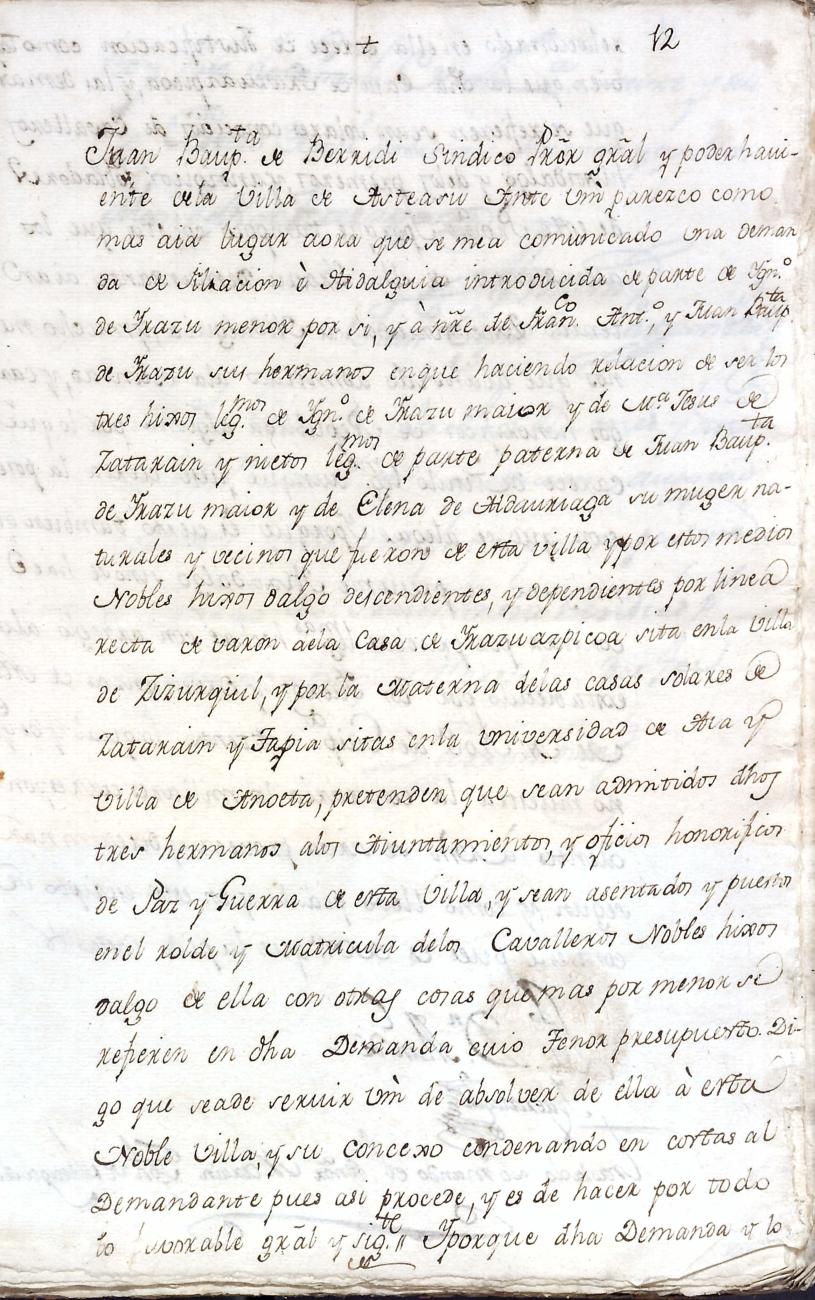 + 12
Juan Baup.ta de Berridi Sindico Prõr grãl y poderhavi-
ente dela Villa de Asteasu Ante Vm̃ parezco como
mas aia lugar aora que se mea comunicado una deman
da de filiacion è Hidalguia introducida de parte de Ygn.o
de Yrazu menor por si, y à nr̃e de Fran.co Ant.o, y Juan Baup.ta
de Yrazu sus hermanos enque haciendo relacion de ser los
tres hixos leg.mos de Ygn.o de Yrazu maior y de M.a Jesus de
Zatarain y nietos leg.mos de parte paterna de Juan Baup.ta
de Yrazu maior y de Elena de Aldauriaga su muger na-
turales y vecinos que fueron de esta villa y por estos medios
Nobles hixos dalgo descendientes, y dependientes por linea
recta de varon dela Casa de Yrazuazpicoa sita enla Villa
de Zizurquil, y por la Materna delas casas solares de
Zatarain y Tapia sitas enla Universidad de Aia y
Villa de Anoeta, pretenden que sean admitidos dhos
tres hermanos alos Aiuntamientos, y oficios honorificos
de Paz y Guerra de esta Villa, y sean asentados y puestos
enel rolde y Matricula delos Cavalleros Nobles hixos
dalgo de ella con otras cosas que mas por menor se
refieren en dha Demanda cuio Tenor presupuesto. Di-
go que seade servir Vm̃ de absolver de ella à esta
Noble Villa, y su Concexo condenando en costas al
Demandante pues asi procede, y es de hacer por todo
lo favorable grãl y sig.te // Yporque dha Demanda y lo